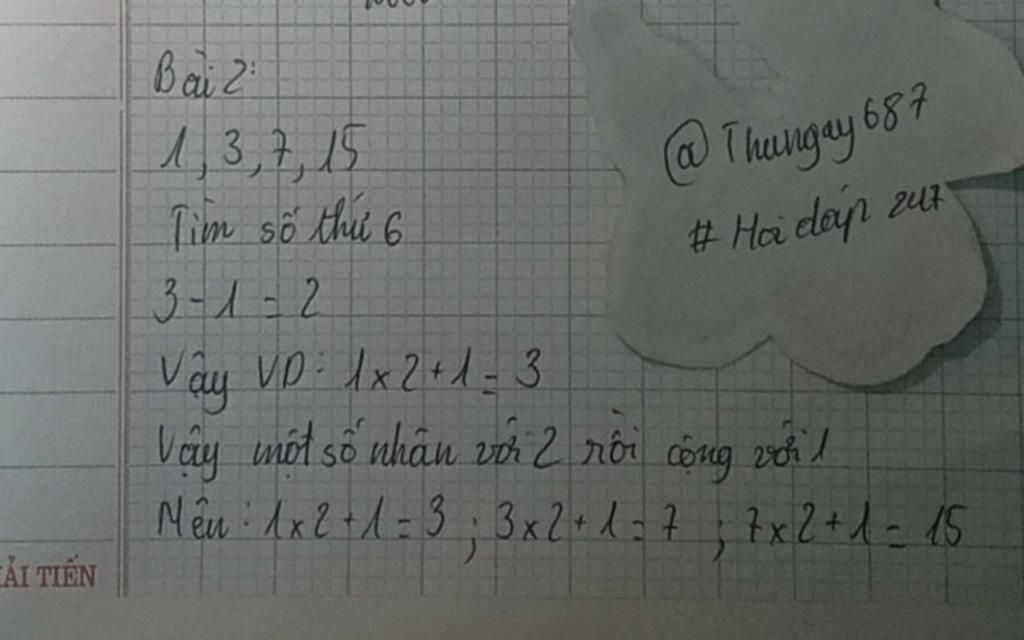 Bài 2:
1, 3, 7, 15
Tìm số thứ 6
3 - 1 = 2
Vậy VD: 1 x 2 + 1 = 3
Vậy một số nhân với 2 rồi cộng với 1
Nên: 1 x 2 + 1 = 3 ; 3 x 2 + 1 = 7 ; 7 x 2 + 1 = 15
@Thungay687
# Hoi dáp 247
ẢI TIẾN